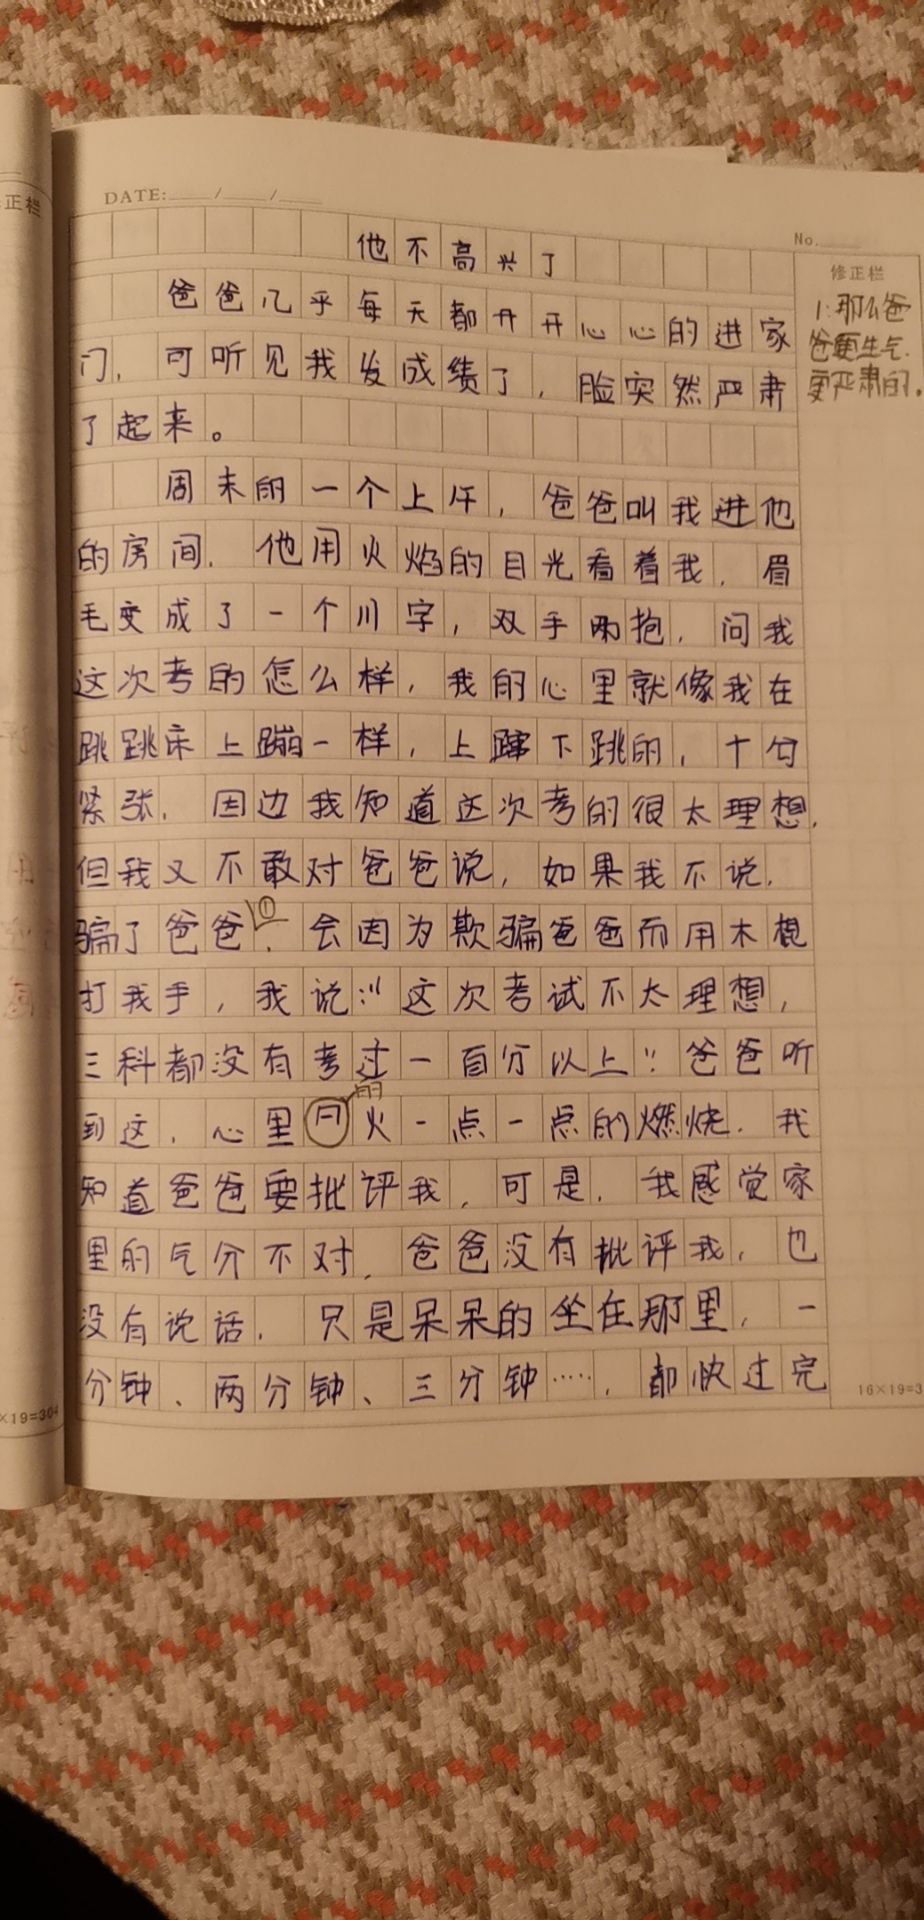 正栏
DATE: / /
No.
修正栏
他不高兴了
爸爸几乎每天都开开心心的进家
门，可听见我发成绩了，脸突然严肃
了起来。
周末的一个上午，爸爸叫我进他
的房间．他用火焰的目光看着我，眉
毛变成了一个川字，双手两抱，问我
这次考的怎么样，我的心里就像我在
跳跳床上蹦一样，上蹿下跳的，十勾
紧张．因边我知道这次考的很太理想．
但我又不敢对爸爸说，如果我不说．
骗了爸爸①．会因为欺骗爸爸而用木棍
打我手，我说:"这次考试不太理想，
三科都没有考过一百分以上"爸爸听
到这．心里火一点一点的燃烧．我
知道爸爸要批评我，可是．我感觉家
里的气分不对．爸爸没有批评我，也
没有说话．只是呆呆的坐在那里，一
分钟、两分钟、三分钟……，都快过完
1.那么爸
爸更生气．
更严肃的．
的
×19=304
16×19=3